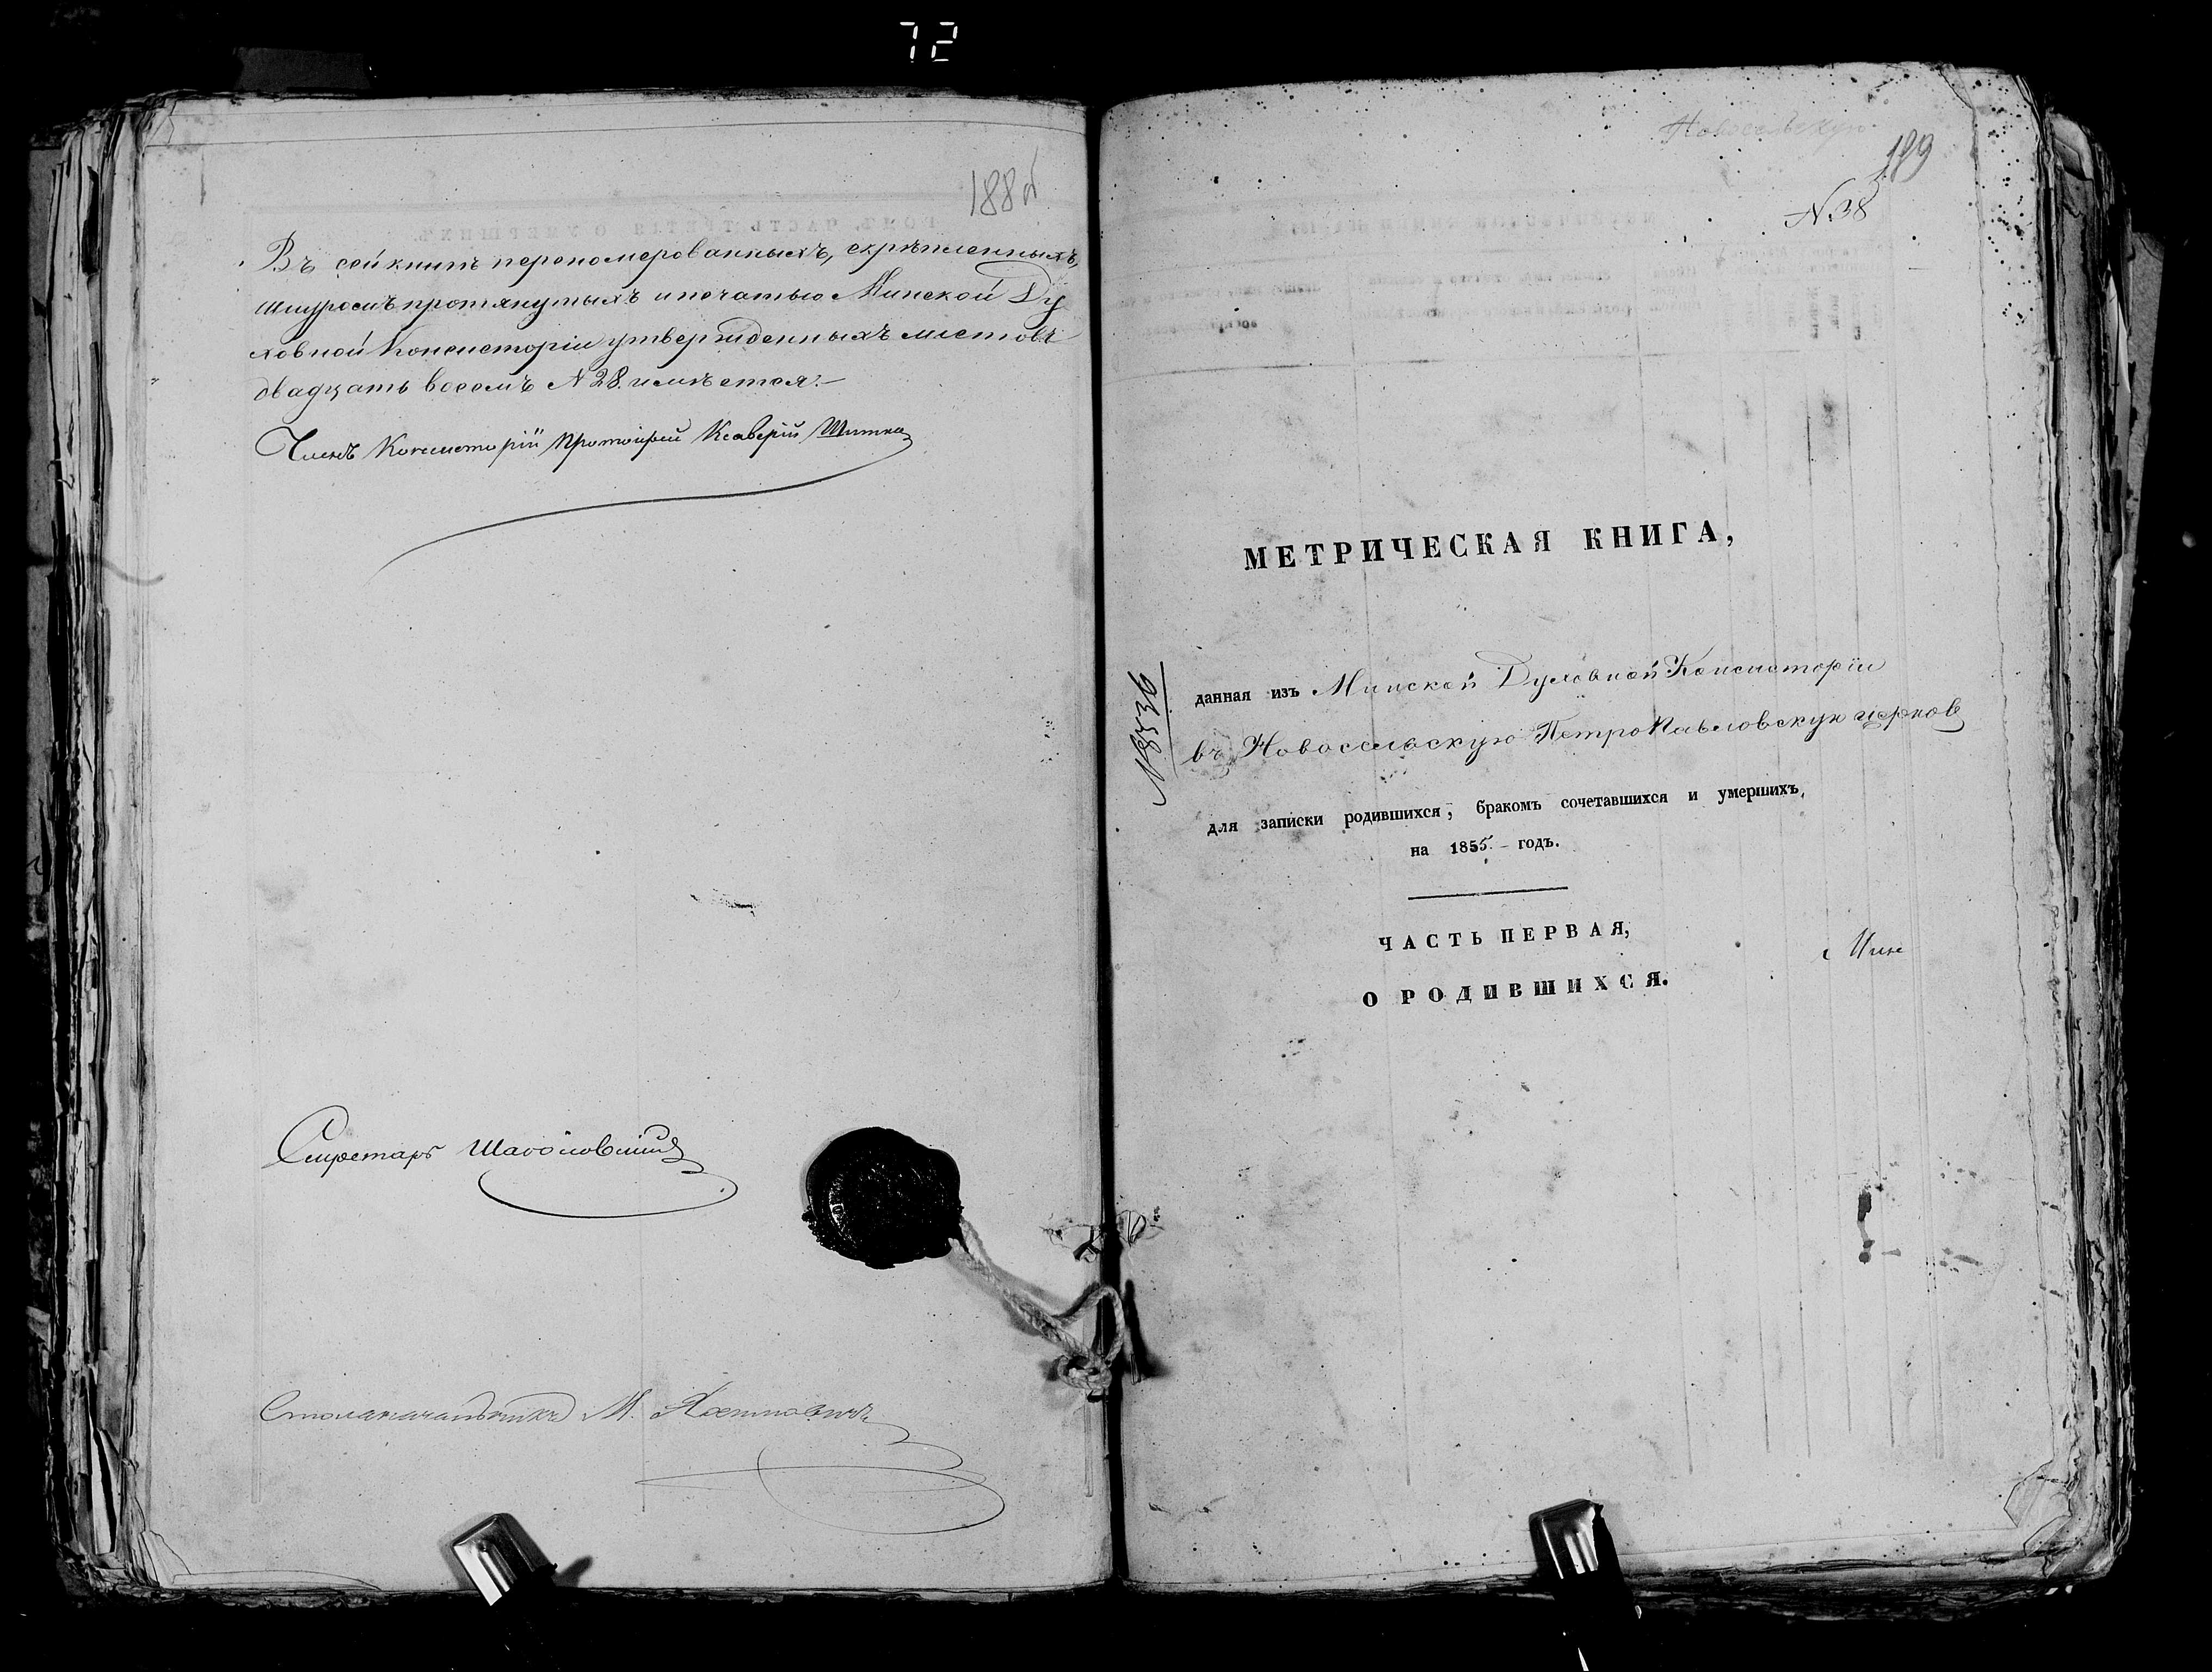 72
188об
Въ сей книгѣ перономерованныхъ, скрѣпленныхъ,
шнуромъ протянутыхъ и печатью Минской Ду
ховной Консисторіи утвержденныхъ листовъ
двадцать восемь N 28. имѣется.—
Членъ Консисторіи Протоіерей Ксаверій
Секретарь
Столоначальникъ М.
Новосельскую
189
N. 38
МЕТРИЧЕСКАЯ КНИГА,
N 8536
данная изъ Минской Духовной Консисторіи
въ Новосельскую ПетроПавловскую церковь
для записки родившихся, бракомъ сочетавшихся и умершихъ,
на 1855.- годъ.
ЧАСТЬ ПЕРВАЯ,
Мин
О РОДИВШИХСЯ.